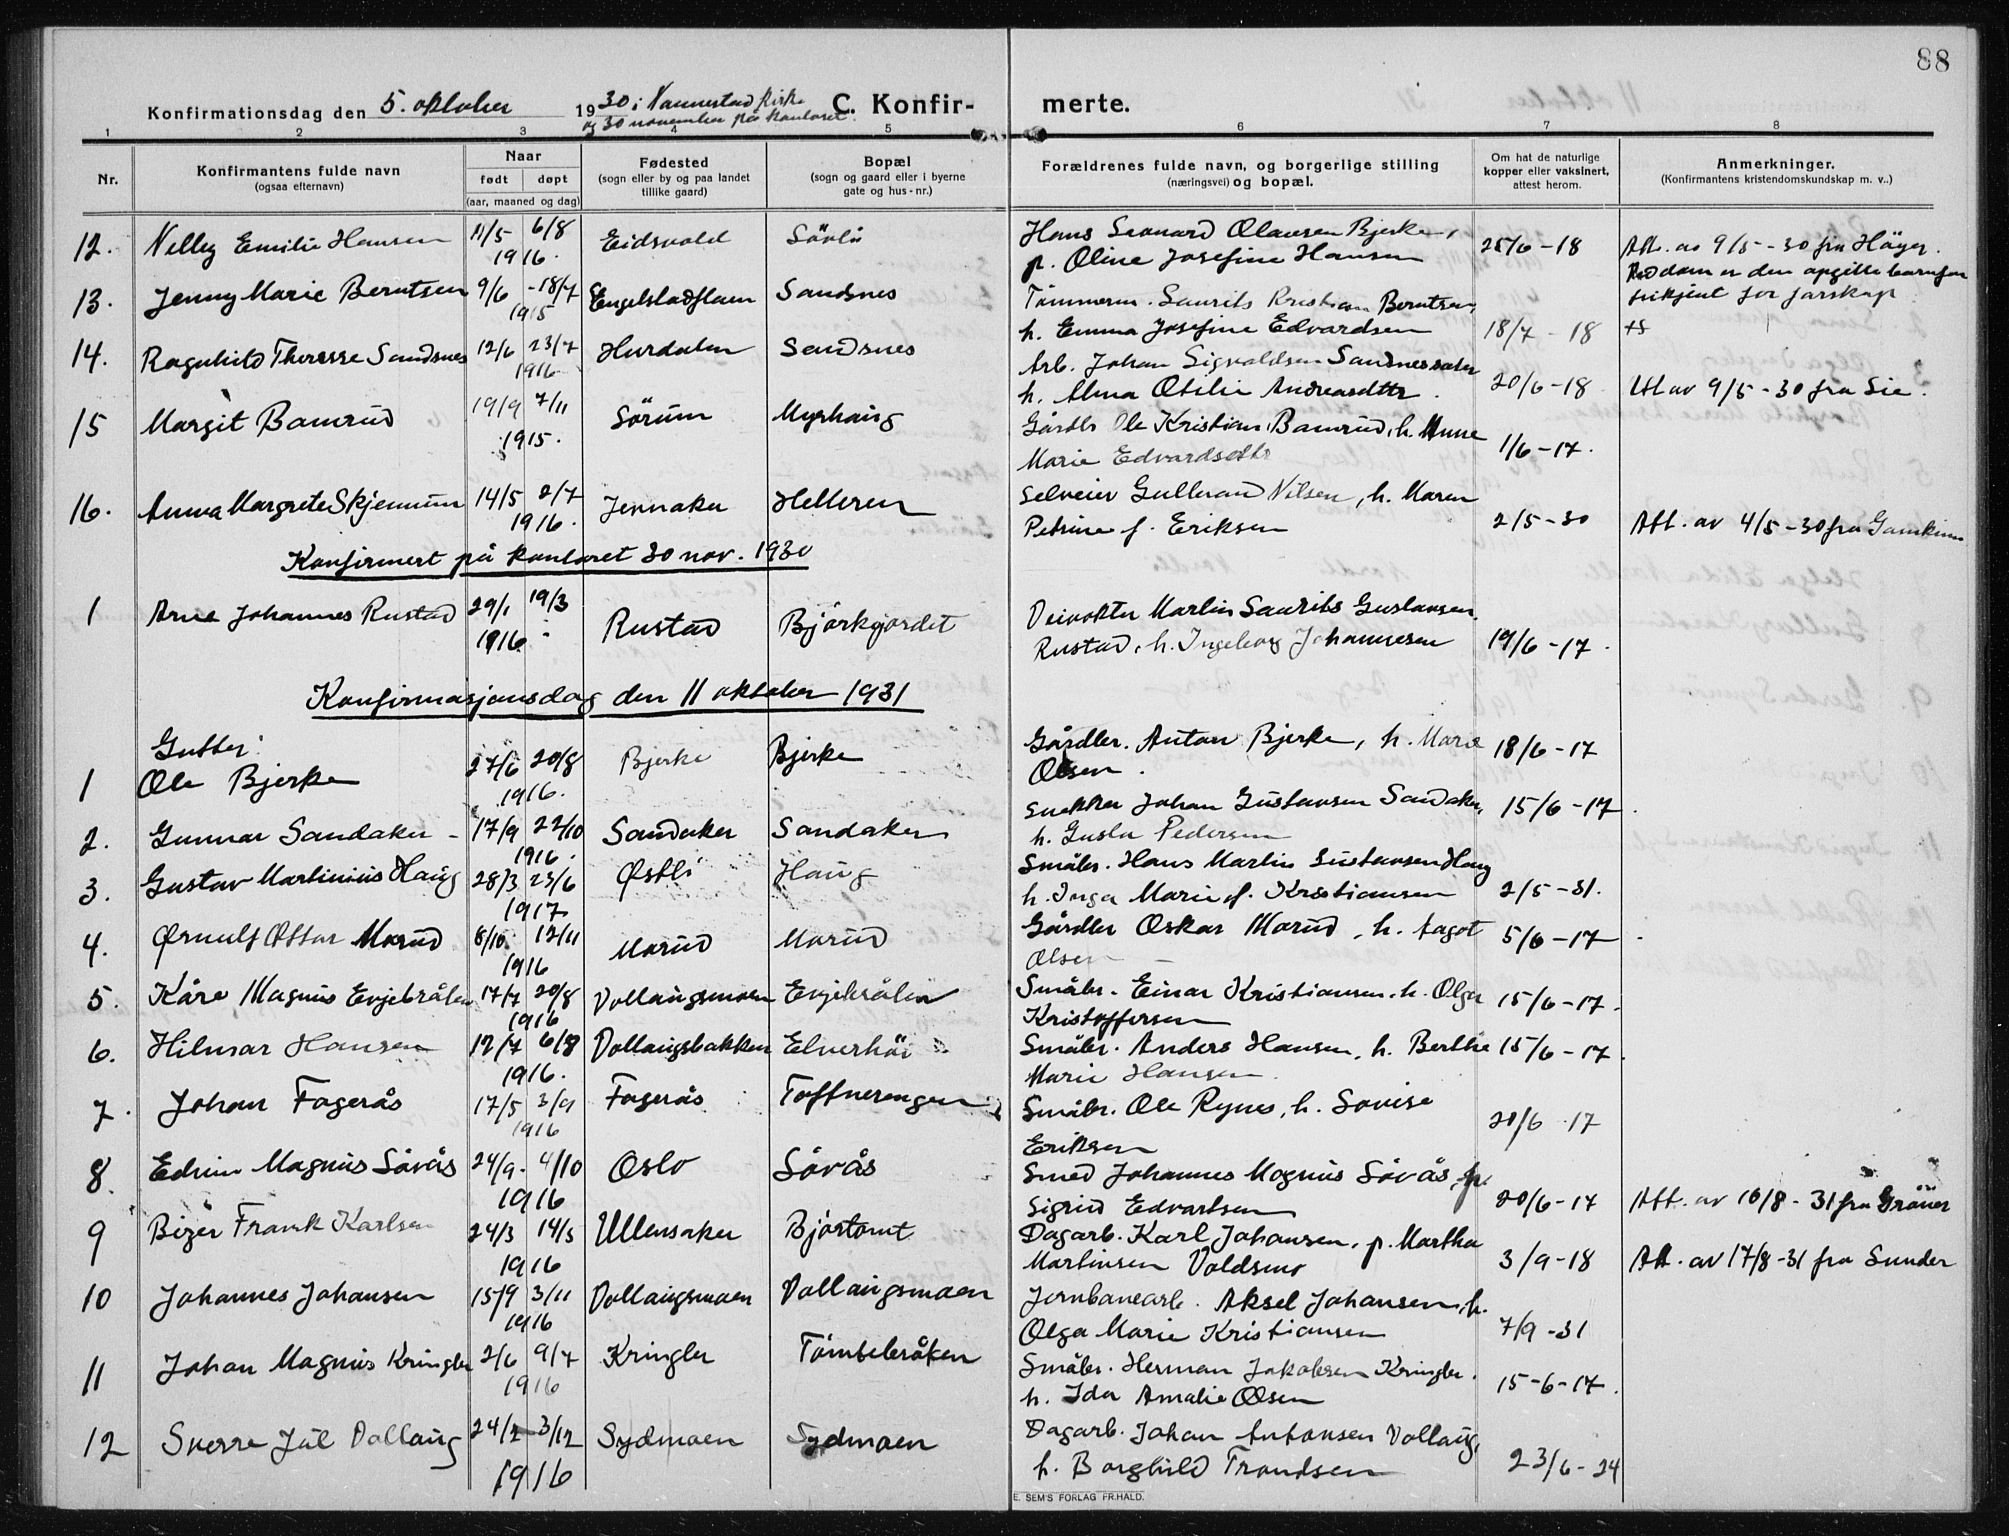 88
Konfirmationsdag den 5. oktober 1930 i Nannestad kirke C. Konfirmerte.
og 30 november på kontoret.
1 2 3 4 5 6 7 8
Nr.
Konfirmantens fulde navn
(ogsaa efternavn)
Naar
født døpt
(aar, maaned og dag)
Fødested
(sogn eller by og paa landet
tillike gaard)
Bopæl
(sogn og gaard eller i byerne
gate og hus-nr.)
Forældrenes fulde navn, og borgerlige stilling
(næringsvei) og bopæl.
Om hat de naturlige
kopper eller vaksinert,
attest herom.
Anmerkninger.
(Konfirmantens kristendomskundskap m. v..)
12. Nelly Emilie Hansen 11/5 6/8 1916. Eidsvold Sövli
Hans Leonard Olausen Bjerke,
p. Oline Josefine Hansen 25/6-18 Att. av 9/5-30 fra Höyer.
Ved dom er den opgitte barnefar
frikjent for farskap
13. Jenny Marie Berntsen 9/6 - 18/7 1915 Sandsnes
Tömmerm. Laurits Kristian Berntsen,
h. Emma Josefine Edvardsen 18/7 - 18
14. Ragnhild Therese Sandsnes 12/6 23/7 1916 Hurdalen Sandsnes
Arb. Johan Sigvaldsen
h. Alma Otilie Andreasdttr. 20/6-18 Att av 9/5-30 fra Lie.
15 Margit Bamrud 19/9 7/11 1915. Sörum Myrhaug
Gårdbr Ole Kristian Bamrud, h. Anne
Marie Edvardsdttr 1/6-17.
16. Anna Margrete Skjennum 14/5 2/7 1916. Jennaker Helleren
Selveier Gulbrand Nilsen, h. Maren
Petrine f. Eriksen 2/5-30 Att. av 4/5-30 fra
Konfirmert på kontoret 30 nov. 1930
1 Arne Johannes Rustad 29/1 19/3 1916 Rustad Björkgjordet
Veivokter Martin Laurits Gustavsen
Rustad, h. Ingeborg Johannesen 19/6-17.
Konfirmasjonsdag den 11 oktober 1931
Gutter:
1 Ole Bjerke 27/6 20/8 1916. Bjerke Bjerke
Gårdbr. Anton Bjerke, h. Marie
Olsen. 18/6-17
2. Gunnar Sandaker 17/9 22/10 1916. Sandaker Sandaker
Snekker Johan Gustavsen Sandaker,
h. Gusta Pedersen 15/6-17.
3. Gustav Martinius Haug 28/3 23/6 1917 Østli Haug
Småbr. Hans Martin Gustavsen Haug
h. Inga Marie f. Kristiansen 2/5-31.
4. Ørnulf Ottar Marud 8/10 12/11 1916 Marud Marud
Gårdbr Oskar Marud, h. Aagot
Olsen 5/6-17
5. Kåre Magnus Evjebråten 17/7 20/8 1916 Vollaugsmoen Evjebråten
Småbr. Einar Kristiansen, h. Olga
Kristoffersen 15/6-17.
6. Hilmar Hansen 12/7 6/8 1916. Vollaugsbakken Elverhöi
Småbr. Anders Hansen, h. Berthe
Marie Hansen 15/6-17.
7. Johan Fagerås 17/5 3/9 1916 Fagerås Toftnerengen
Småbr. Ole Rynes, h. Lovise
Eriksen 20/6 17
8. Edvin Magnus Lövås 24/9 - 4/10 1916 Oslo Lövås
Smed Johannes Magnus Lövås,
Sigrid Edvartsen 20/6-17 Att. av 16/8-31 fra Gröner
9 Birger Frank Karlsen 24/3 14/5 1916 Ullensaker Björtomt
Dagarb. Karl Johansen, p. Martha
Martinsen Voldsmo 3/9-18 Att. av 17/8-31 fra Sunder
10 Johannes Johansen 15/9 3/11 1916 Vollaugsmoen Vollaugsmoen
Jernbanearb. Aksel Johansen, h.
Olga Marie Kristiansen 7/9-31
11 Johan Magnus Kringler 2/6 9/7 1916 Kringler Tömtebråten
Småbr. Herman Jakobsen Kringler.
h. Ida Amalie Olsen 15-6-17.
12 Sverre Jul Vollaug 24/2 - 3/12 1916 Sydmoen Sydmoen
Dagarb. Johan Antonsen Vollaug,
h. Borghild Trondsen 23/6-24
E. SEM'S FORLAG FR.HALD.